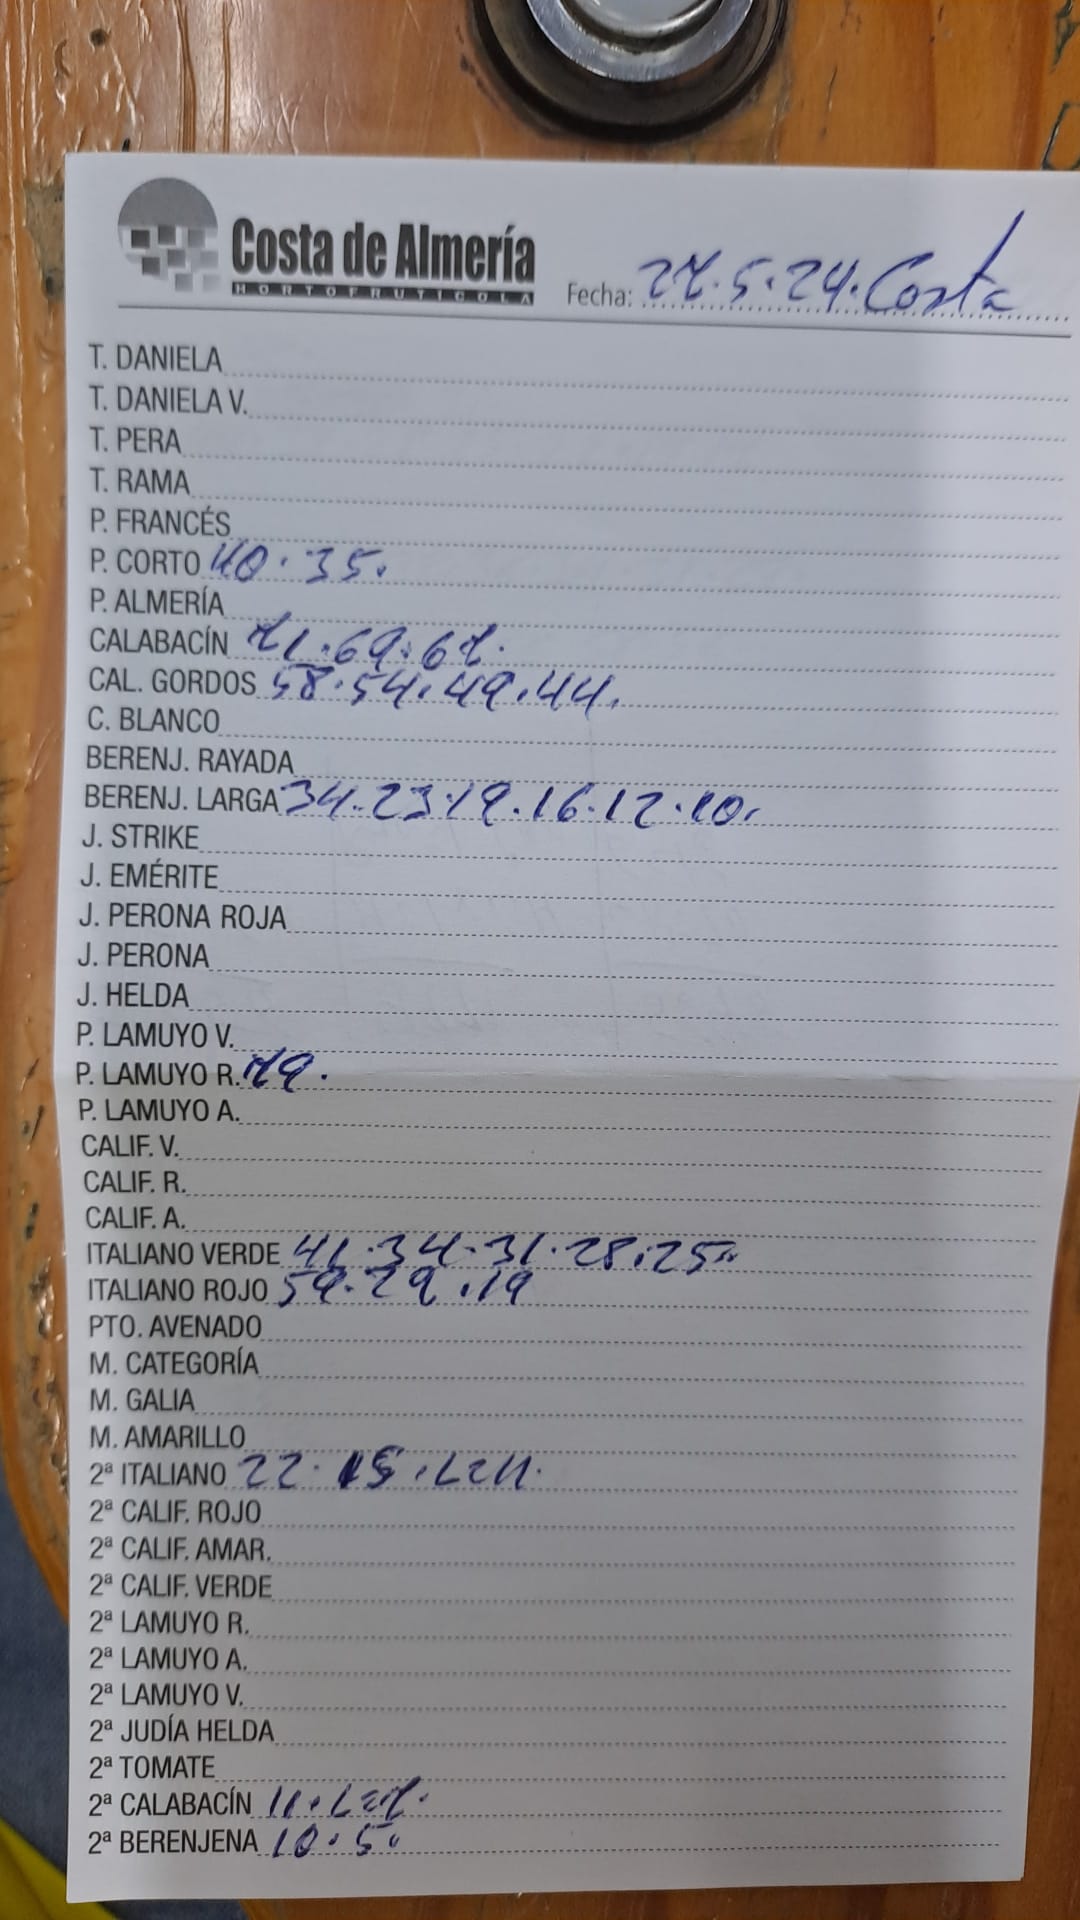 Costa de Almería
HORTOFRUTICOLA
Fecha: 27.5.24. Costa
T. DANIELA
T. DANIELA V.
T. PERA
T. RAMA
P. FRANCÉS
P. CORTO 40. 35.
P. ALMERÍA
CALABACÍN 71.69.67.
CAL. GORDOS 58.54.49.44.
C. BLANCO
BERENJ. RAYADA
BERENJ. LARGA 34.23.19.16.12.10.
J. STRIKE
J. EMÉRITE
J. PERONA ROJA
J. PERONA
J. HELDA
P. LAMUYO V.
P. LAMUYO R. 79.
P. LAMUYO A.
CALIF. V.
CALIF. R.
CALIF. A.
ITALIANO VERDE 41.34.31.28.25
ITALIANO ROJO 59.29.19
PTO. AVENADO
M. CATEGORÍA
M. GALIA
M. AMARILLO
2ª ITALIANO 22. 15.
2ª CALIF. ROJO
2ª CALIF. AMAR.
2ª CALIF. VERDE
2ª LAMUYO R.
2ª LAMUYO A.
2ª LAMUYO V.
2ª JUDÍA HELDA
2ª TOMATE
2ª CALABACÍN 11.
2ª BERENJENA 10.5.